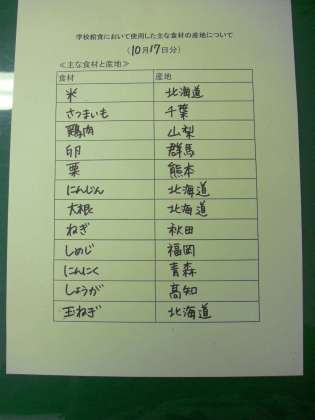 学校給食において使用した主な食材の産地について
（10月17日分）
＜主な食材と産地＞
食材 産地
米 北海道
さつまいも 千葉
鶏肉 山梨
卵 群馬
栗 熊本
にんじん 北海道
大根 北海道
ねぎ 秋田
しめじ 福岡
にんにく 青森
しょうが 高知
玉ねぎ 北海道